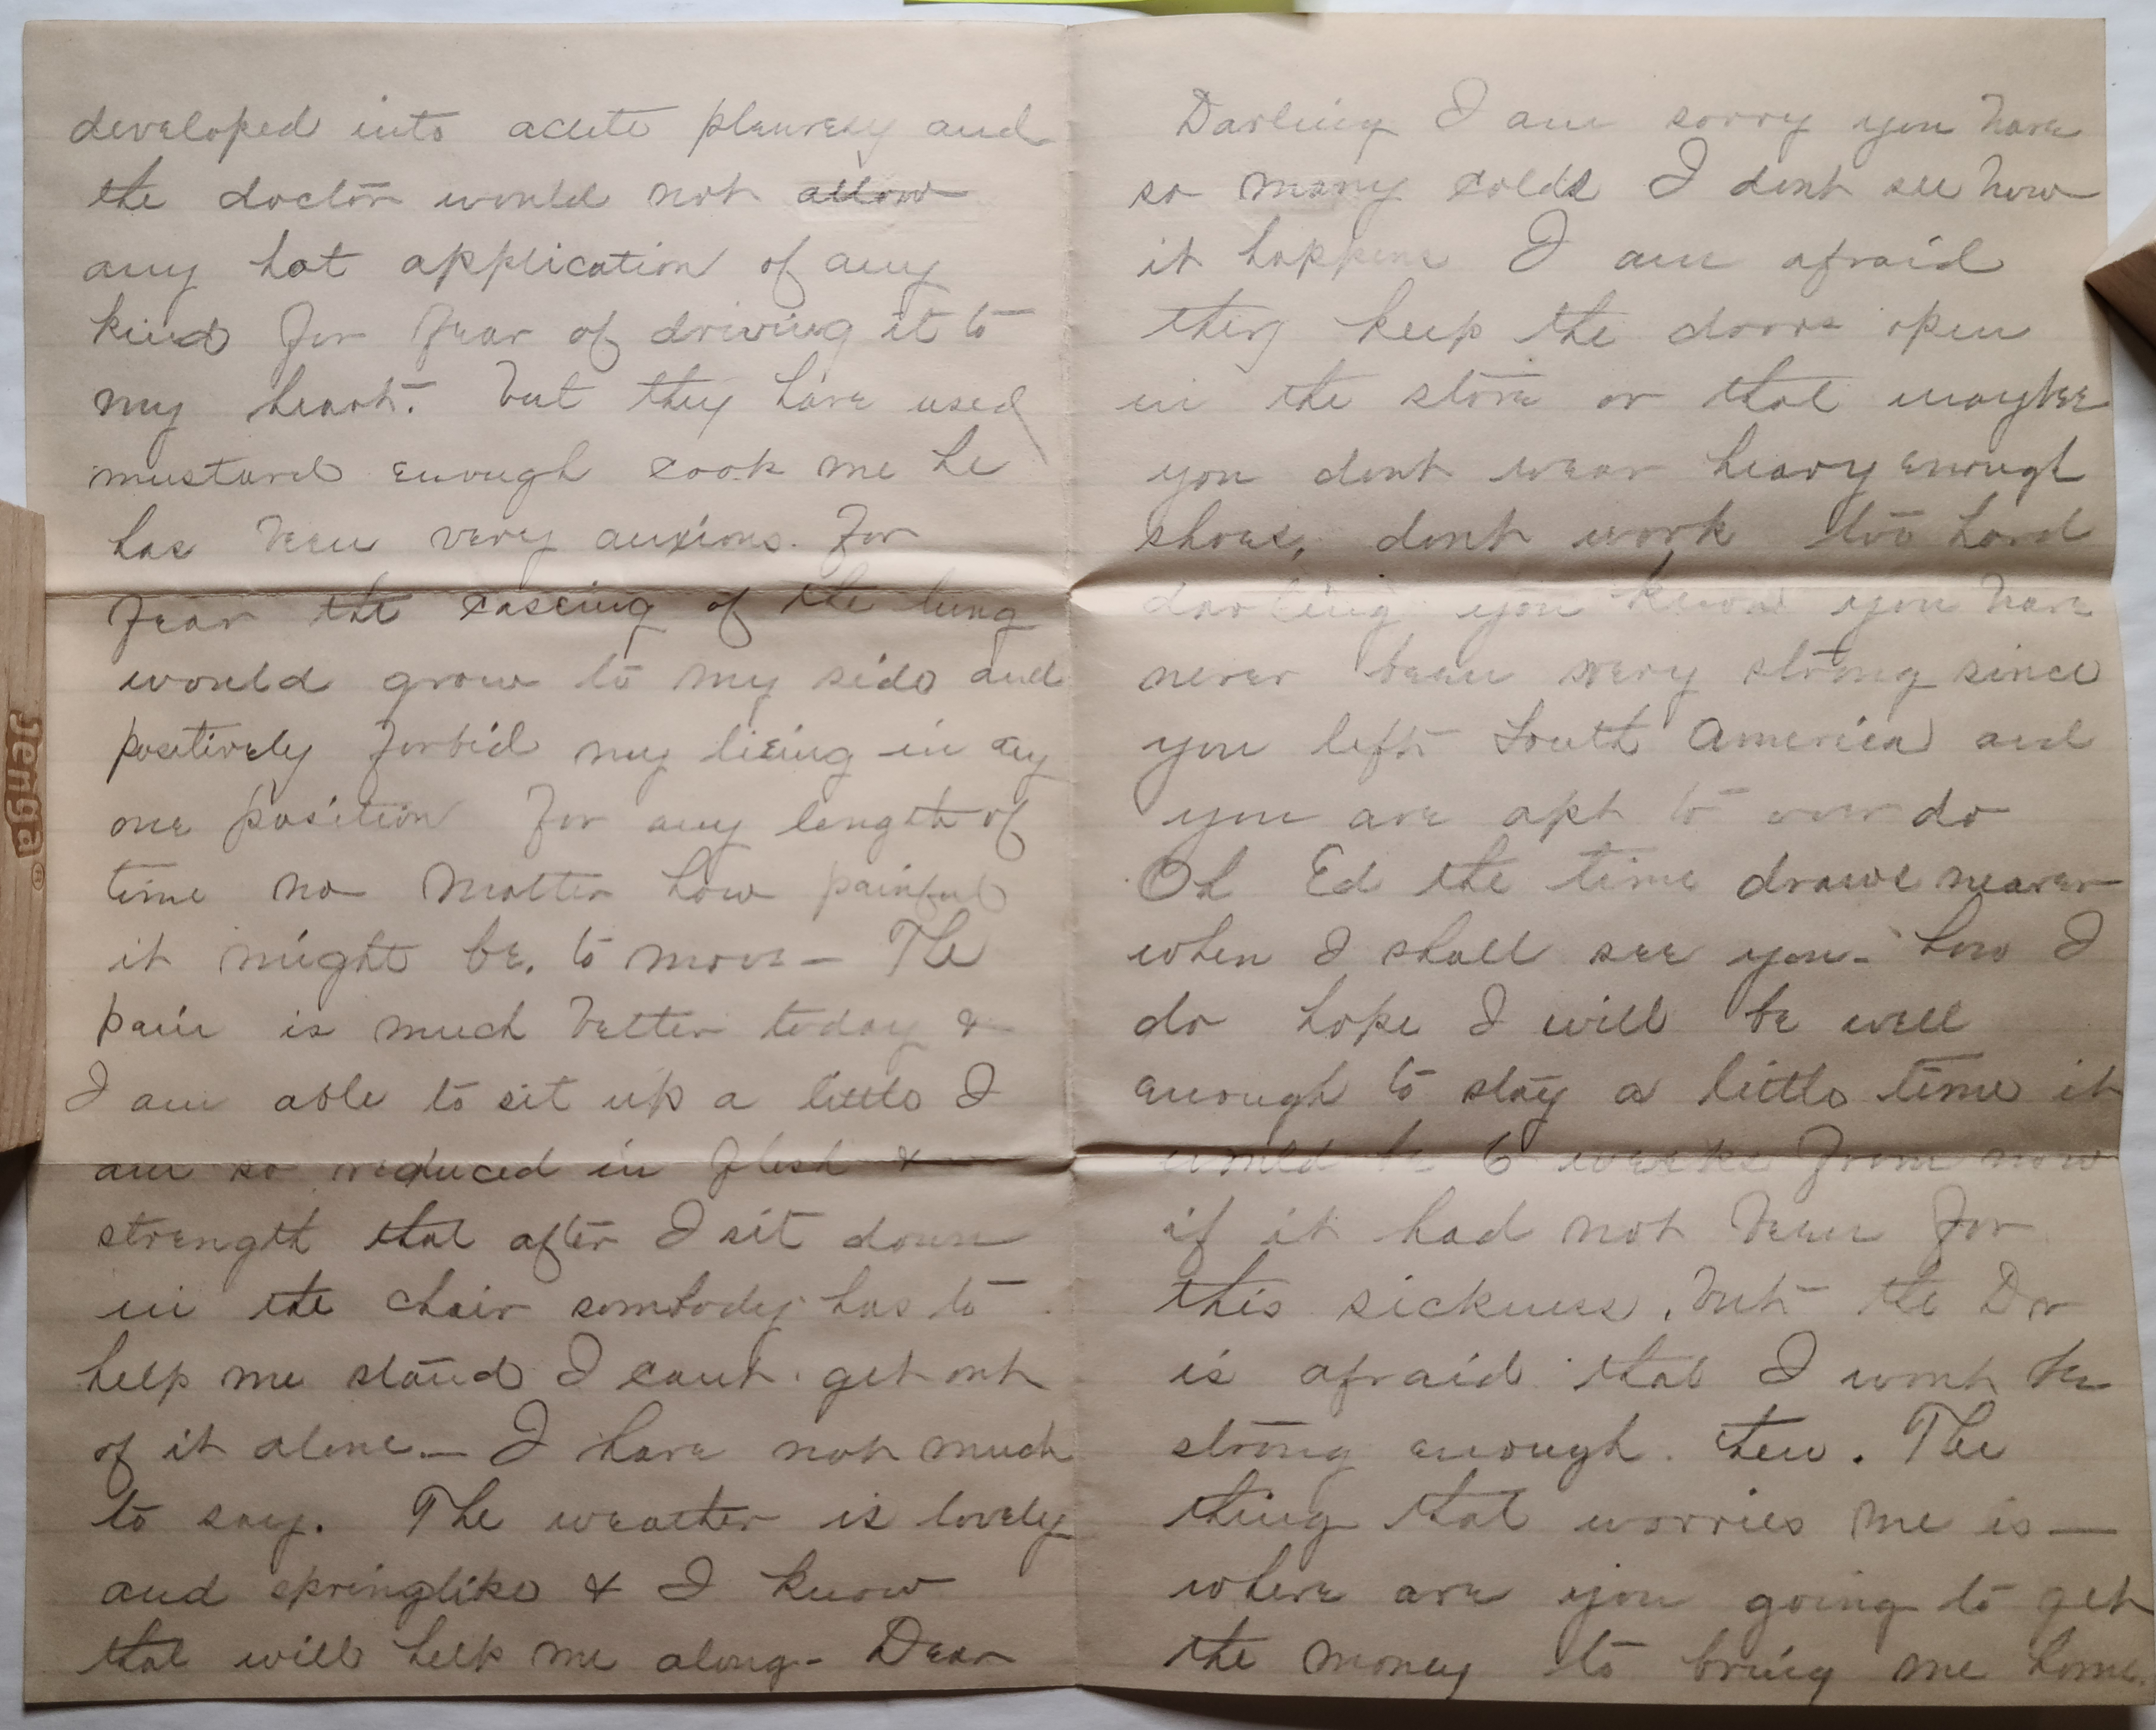 developed into acute pleuresy and
the doctor would not allow
any hot application of any
kind for fear of driving it to
my heart. but they have used
mustard enough cook me he
has been very anxious. for
fear the caseing of the lung
would grow to my side and
positively forbid my lieing in any
one position for any length of
time no matter how painful
it might be. to move — The
pain is much better today &
I am able to sit up a little I
am so reduced in flesh &
strength that after I sit down
in the chair sombody has to
help me stand I cant get out
of it alone — I have not much
to say. The weather is lovely
and springlike & I know
that will help me along - Dear
Darling I am sorry you have
so many colds I dont see how
it happens I am afraid
they keep the doors open
in the store or that maybee
you dont wear heavy enough
shoes, dont work too hard
darling you know you have
never been very strong since
you left South America and
you are apt to over do
Oh Ed the time draws nearer
when I shall see you - how I
do hope I will be well
enough to stay a little time it
would be 6 weeks from now
if it had not been for
this sickness. but the Dr
is afraid that I wont be
strong enough then. The
thing that worries me is —
where are you going to get
the money to bring me home.
Jenga®